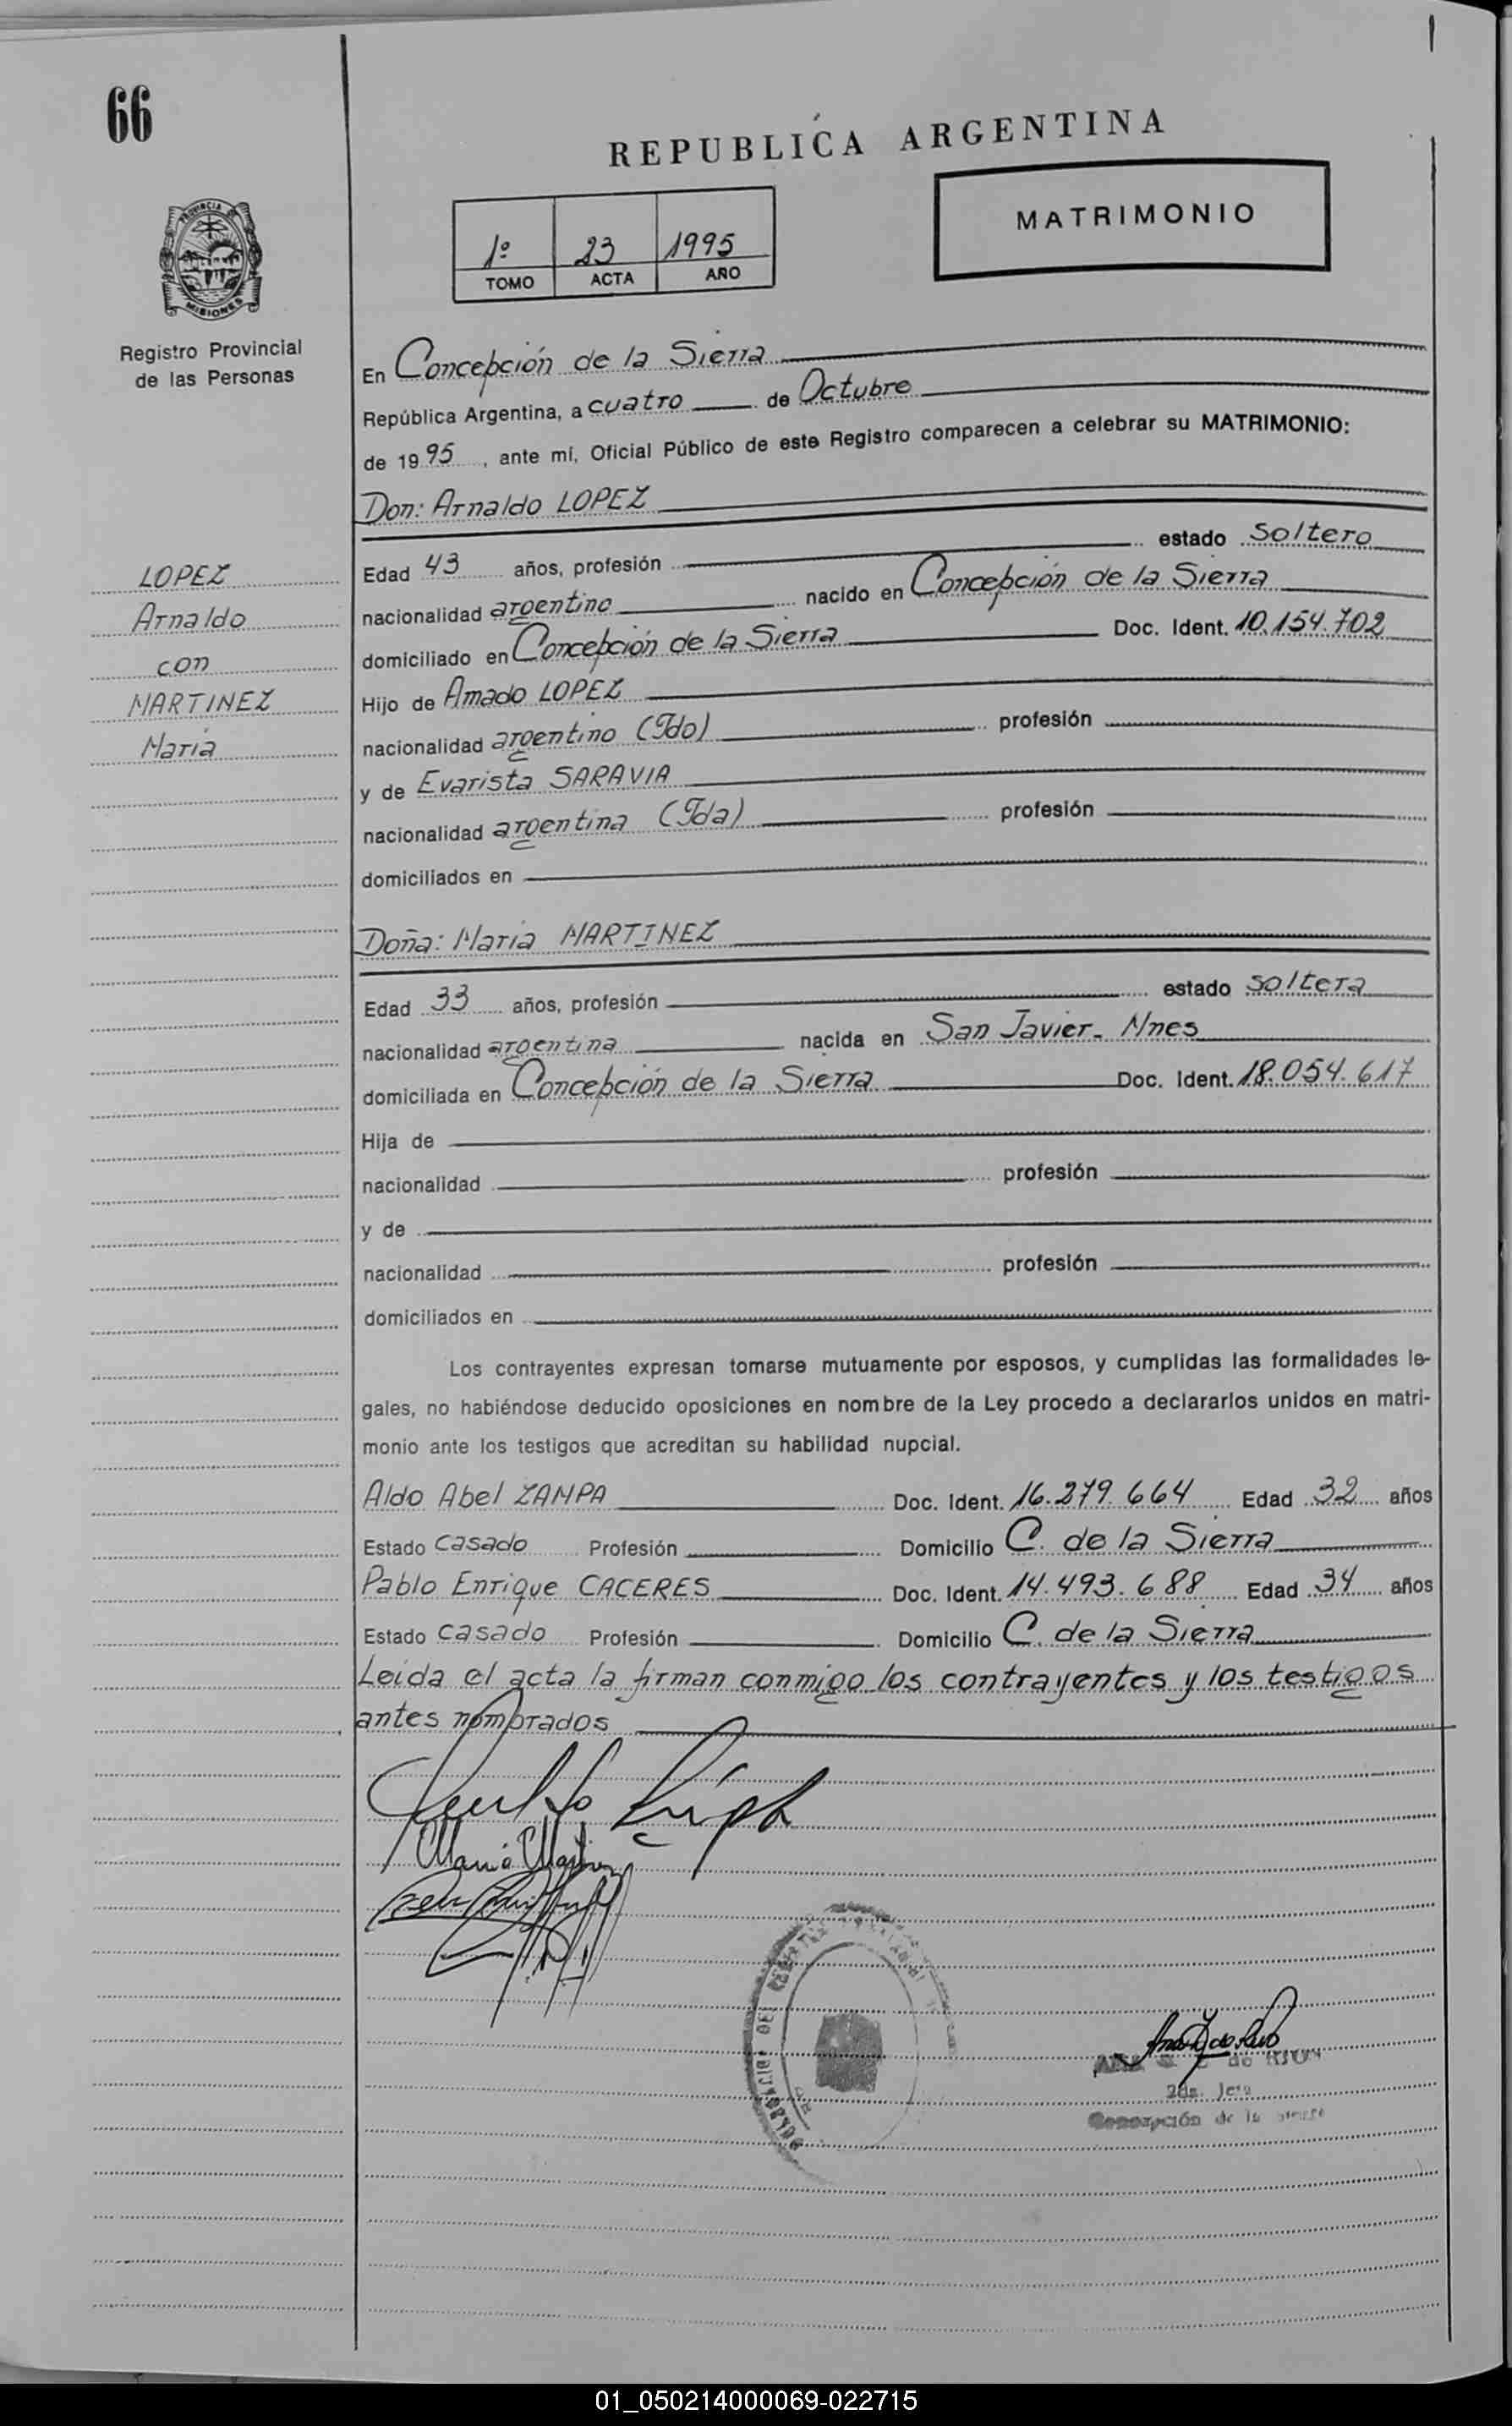 66
REPUBLICA ARGENTINA
1º 23 1995
TOMO ACTA AÑO
MATRIMONIO
PROVINCIA DE
MISIONES
Registro Provincial
de las Personas
En Concepción de la Sierra
República Argentina, a cuatro de Octubre
de 1995, ante mí, Oficial Público de este Registro comparecen a celebrar su MATRIMONIO:
Don: Arnaldo LOPEZ
LOPEZ
Arnaldo
con
MARTINEZ
María
Edad 43 años, profesión estado soltero
nacionalidad argentino nacido en Concepción de la Sierra
domiciliado en Concepción de la Sierra Doc. Ident. 10.154.702
Hijo de Amado LOPEZ
nacionalidad argentino (Fdo) profesión
y de Evarista SARAVIA
nacionalidad argentina (Fda) profesión
domiciliados en
Doña: María MARTINEZ
Edad 33 años, profesión estado soltera
nacionalidad argentina nacida en San Javier- Mnes
domiciliada en Concepción de la Sierra Doc. Ident. 18.054.617
Hija de
nacionalidad profesión
y de
nacionalidad profesión
domiciliados en
Los contrayentes expresan tomarse mutuamente por esposos, y cumplidas las formalidades le-
gales, no habiéndose deducido oposiciones en nombre de la Ley procedo a declararlos unidos en matri-
monio ante los testigos que acreditan su habilidad nupcial.
Aldo Abel ZAMPA Doc. Ident. 16.279.664 Edad 32 años
Estado casado Profesión Domicilio C. de la Sierra
Pablo Enrique CACERES Doc. Ident. 14.493.688 Edad 34 años
Estado casado Profesión Domicilio C. de la Sierra
Leída el acta la firman conmigo los contrayentes y los testigos
antes nombrados
María Martinez
2da. Jefa
Concepción de la Sierra
01_050214000069-022715